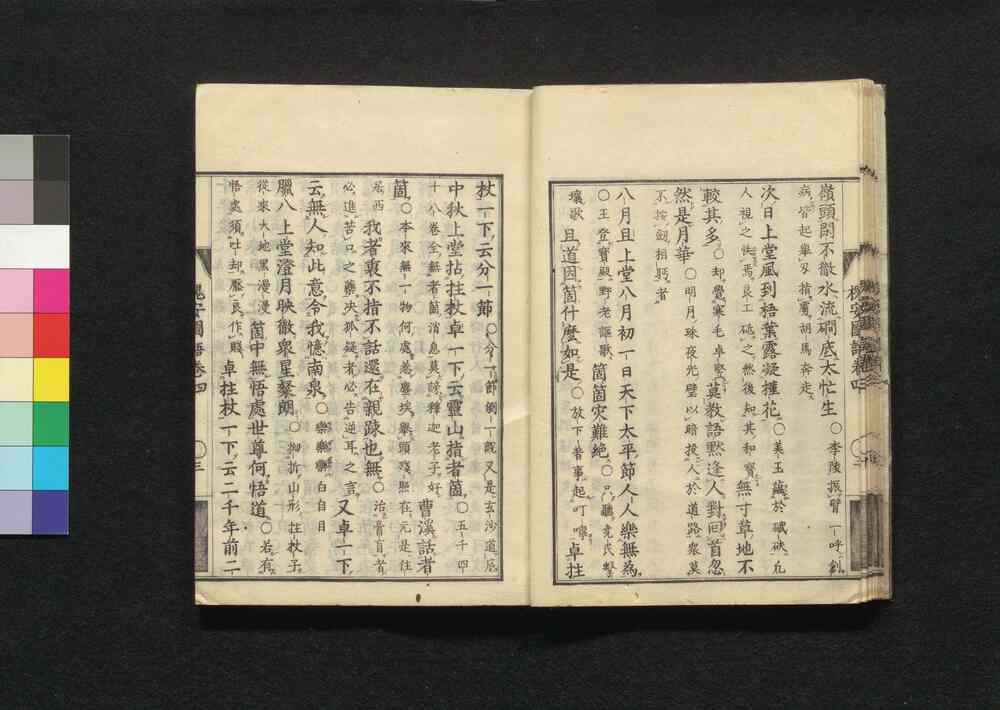 嶺頭閑不徹水流磵底太忙生〇李陵振臂一呼創
病皆起擧刃指虜胡馬奔走
次日上堂風到梧葉露凝槿花〇美玉蘊於碔砆凡
人視之怢焉良工砥之然後知其和寶無寸草地不
較其多〇却覺寒毛卓竪莫教語默逢人對回首忽
然是月華〇明月珠夜光璧以暗投人於道路衆莫
不按劔相眄者
八月旦上堂八月初一日天下太平節人人樂無為
〇王登寶殿野老謳歌箇箇災難絶〇只聽堯民擊
壤歌且道因箇什麼如是〇放下昔事起叮嚀卓拄
杖一下云分一節〇分一節倒一既又是玄沙道底
中秋上堂拈拄杖卓一下云靈山指者箇〇五千四
十八卷全無者箇消息莫謗釋迦老子好曹溪話者
箇〇本來無一物何處惹塵埃擧頭殘照在元是住
居西我者裏不指不話還在親踈也無〇治膏肓者
必進苦口之藥决狐疑者必告逆耳之言又卓一下
云無人知此意令我憶南泉〇噿噿噿白白目
臘八上堂澄月映徹衆星粲朗〇拗折山形拄杖子
從來大地黒漫漫箇中無悟處世尊何悟道〇若有
悟處須吐却壓良作賤卓拄杖一下云二千年前二
槐安國語卷四
〇三